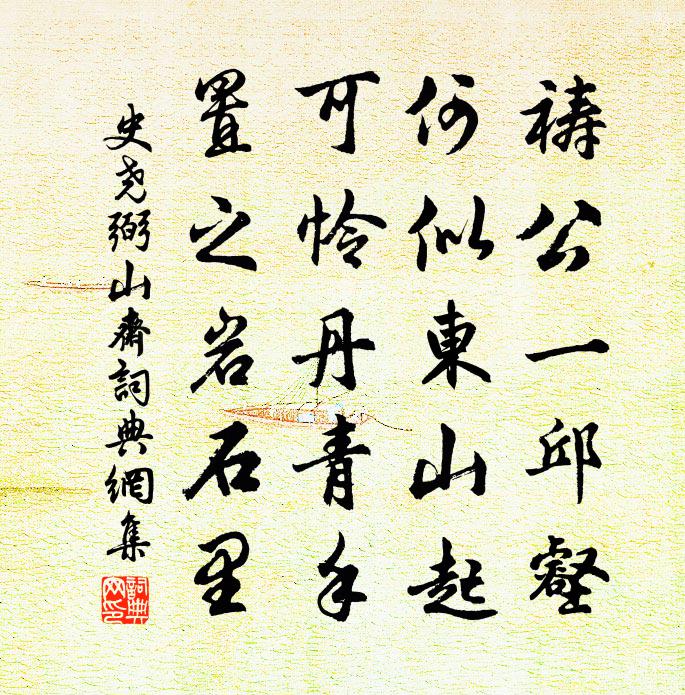 祷公一邱壑
何似東山起
可怜丹青手
置之岩石里
史尧弼山齋詞典網集
詞典網印